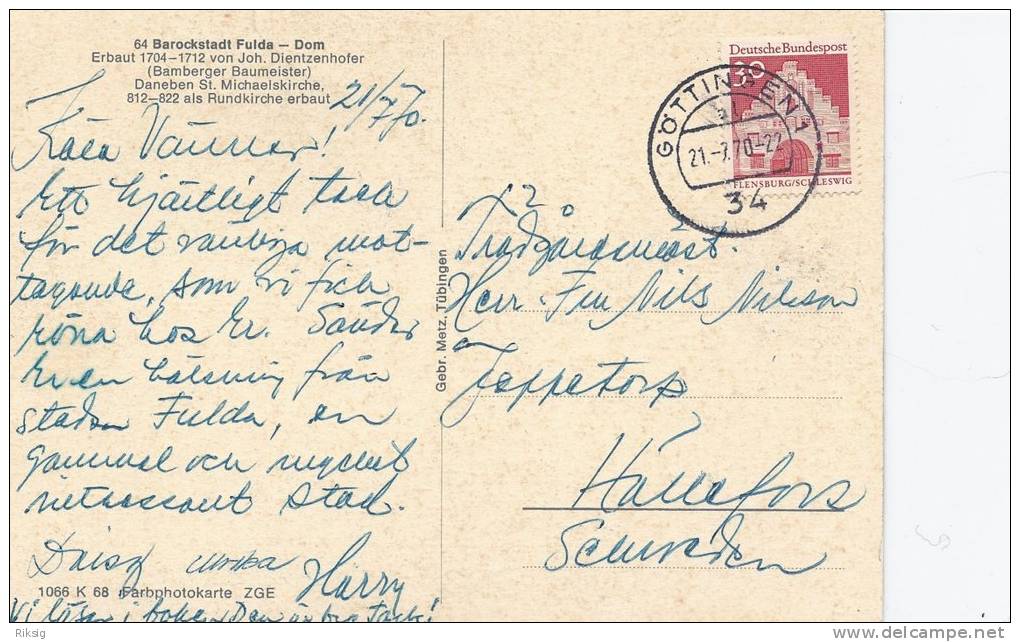 64 Barockstadt Fulda – Dom
Erbaut 1704–1712 von Joh. Dientzenhofer
(Bamberger Baumeister)
Daneben St. Michaelskirche,
812–822 als Rundkirche erbaut
21/7 70.
Kära Vänner!
Ett hjärtligt tack
för det vänliga mot-
tagande, som vi fick
röna hos Er. Sänder
Er en hälsning från
staden Fulda, en
gammal och mycket
intressant stad.
Daisy Harry
Vi läser i boken. Den är bra Tack!
1066 K 68 Farbphotokarte ZGE
Gebr. Metz, Tübingen
Deutsche Bundespost
30
FLENSBURG/SCHLESWIG
GÖTTINGEN 1
21.-7.70-22
34
Trädgårdsmäst.
Herr Nils Nilsson
Jeppetorp
Hällefors
Schweden
Riksig
delcampe.net